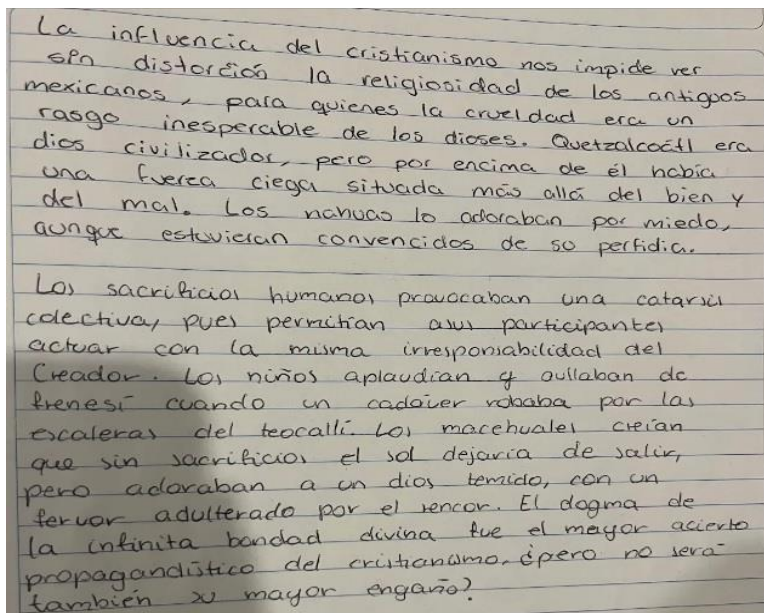 La influencia del cristianismo nos impide ver
sin distorción la religiosidad de los antiguos
mexicanos, para quienes la crueldad era un
rasgo inesperable de los dioses. Quetzalcoátl era
dios civilizador, pero por encima de él había
una fuerza ciega situada más allá del bien y
del mal. Los nahuas lo adoraban por miedo,
aunque estuvieran convencidos de su perfidia.
Los sacrificios humanos provocaban una catarsis
colectiva, pues permitían asus participantes
actuar con la misma irresponsabilidad del
Creador. Los niños aplaudían y aullaban de
frenesí cuando un cadáver robaba por las
escaleras del teocalli. Los macehuales creían
que sin sacrificios el sol dejaría de salir,
pero adoraban a un dios temido, con un
fervor adulterado por el rencor. El dogma de
la infinita bondad divina fue el mayor acierto
propagandístico del cristianismo, ¿pero no será
también su mayor engaño?